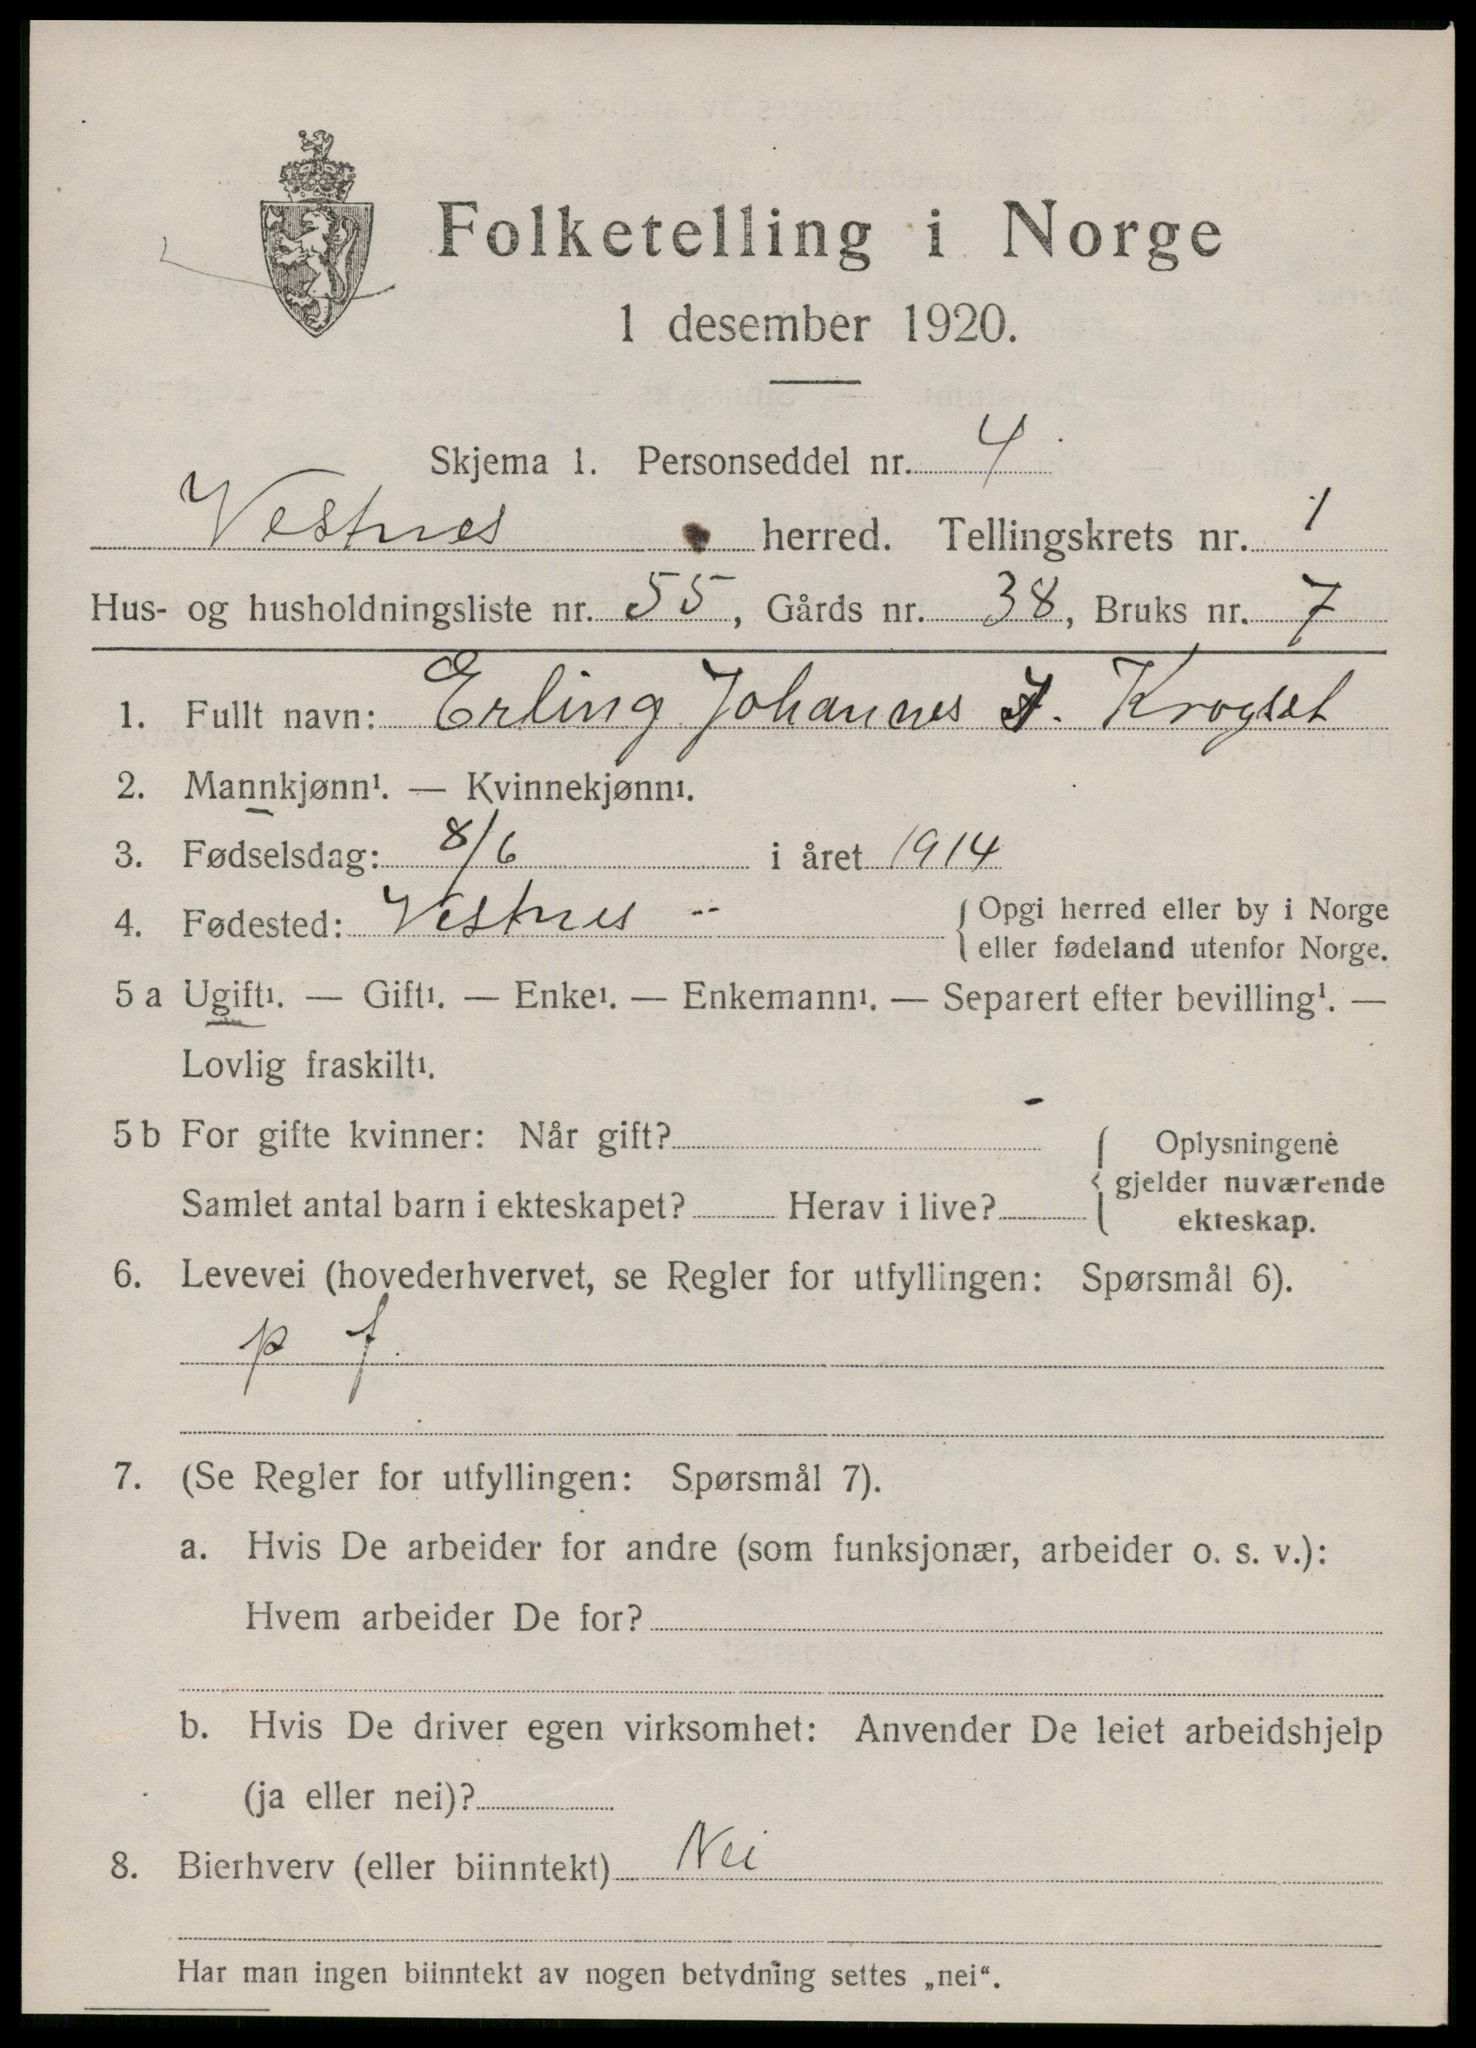 Folketelling i Norge
1 desember 1920.
Skjema 1. Personseddel nr. 4
Vestnes herred. Tellingskrets nr. 1
Hus- og husholdningsliste nr. 55, Gårds nr. 38, Bruks nr. 7
1. Fullt navn: Erling Johannes J. Krogset
2. Mannkjønn¹. — Kvinnekjønn¹.
3. Fødselsdag: 8/6 i året 1914
4. Fødested: Vestnes -- { Opgi herred eller by i Norge
eller fødeland utenfor Norge.
5 a Ugift¹. — Gift¹. — Enke¹. — Enkemann¹. — Separert efter bevilling¹. —
Lovlig fraskilt¹.
5 b For gifte kvinner: Når gift? - { Oplysningene
gjelder nuværende
ekteskap.
Samlet antal barn i ekteskapet? Herav i live?
6. Levevei (hovederhvervet, se Regler for utfyllingen: Spørsmål 6).
p f.
7. (Se Regler for utfyllingen: Spørsmål 7).
a. Hvis De arbeider for andre (som funksjonær, arbeider o. s. v.):
Hvem arbeider De for?
b. Hvis De driver egen virksomhet: Anvender De leiet arbeidshjelp
(ja eller nei)?
8. Bierhverv (eller biinntekt) Nei
Har man ingen biinntekt av nogen betydning settes „nei“.